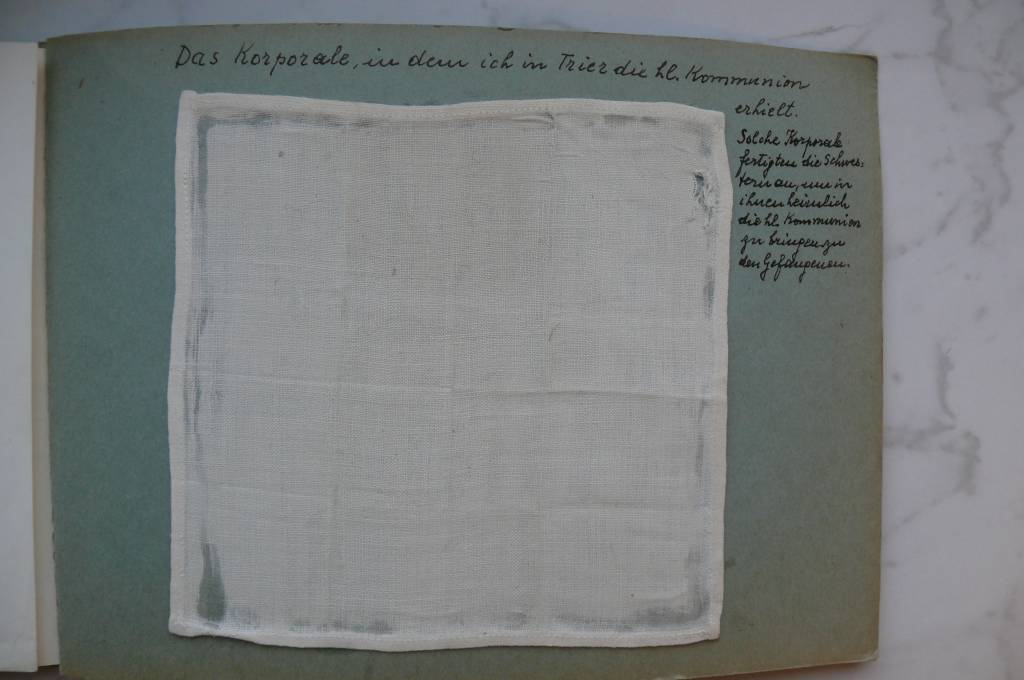 Das Korporale, in dem ich in Trier die hl. Kommunion
erhielt.
Solche Korporale
fertigten die Schwes-
tern an, um in
ihnen heimlich
die hl. Kommunion
zu bringen zu
den Gefangenen.